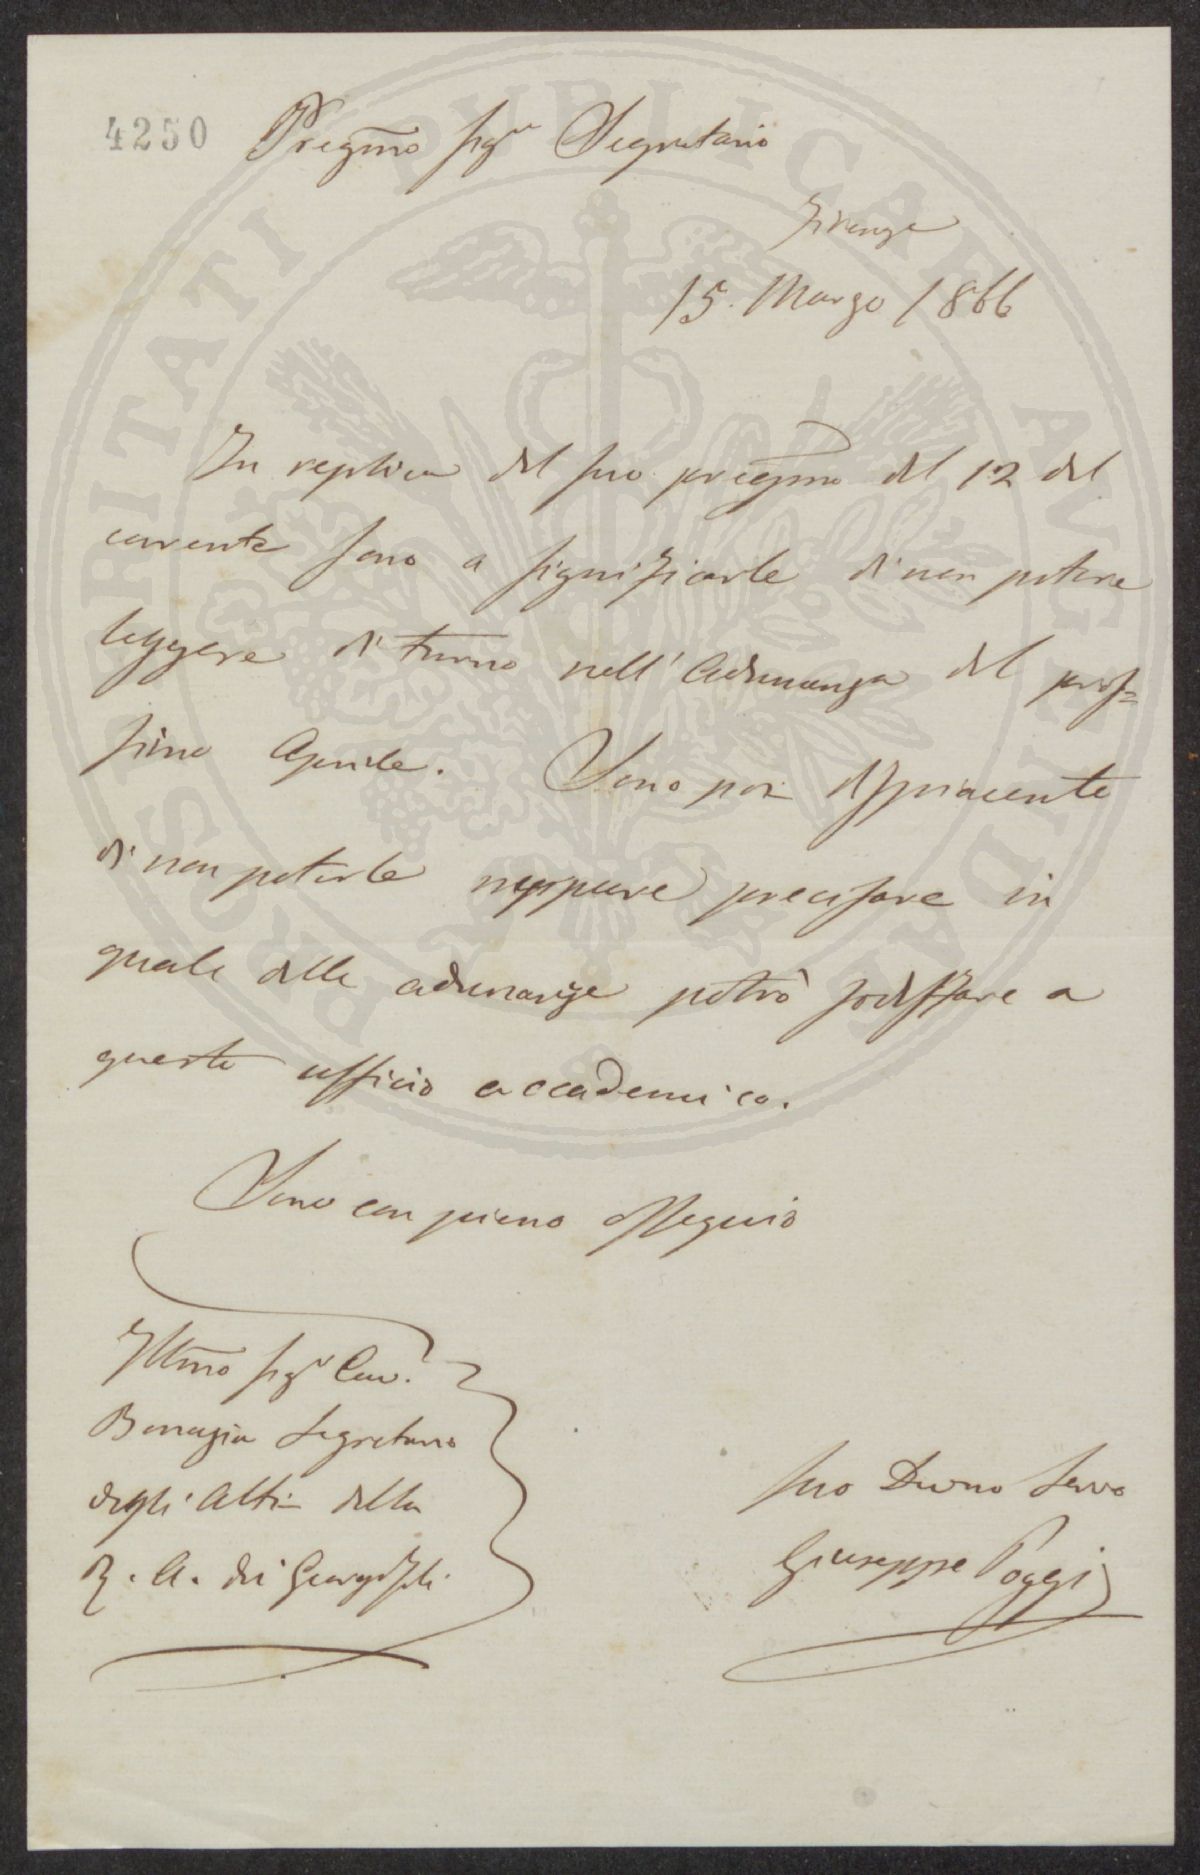 4250
Pregmo Sigre Segretario
Firenze
15. Marzo 1866
In replica del suo pregmo del 12 del
corrente sono a significarle di non potere
leggere di turno nell'Adunanza del pros=
simo Aprile. Sono poi dispiacente
di non poterle neppure precisare in
quale delle adunanze potrò sodisfare a
questo ufficio accademico.
Sono con pieno ossequio
Illmo Sigr Cav.
Segretario
degli Atti della
R. A. dei Georgofili
Suo Devmo Servo
Giuseppe Poggi
PROSPERITATI PUBLICAE AUGENDAE